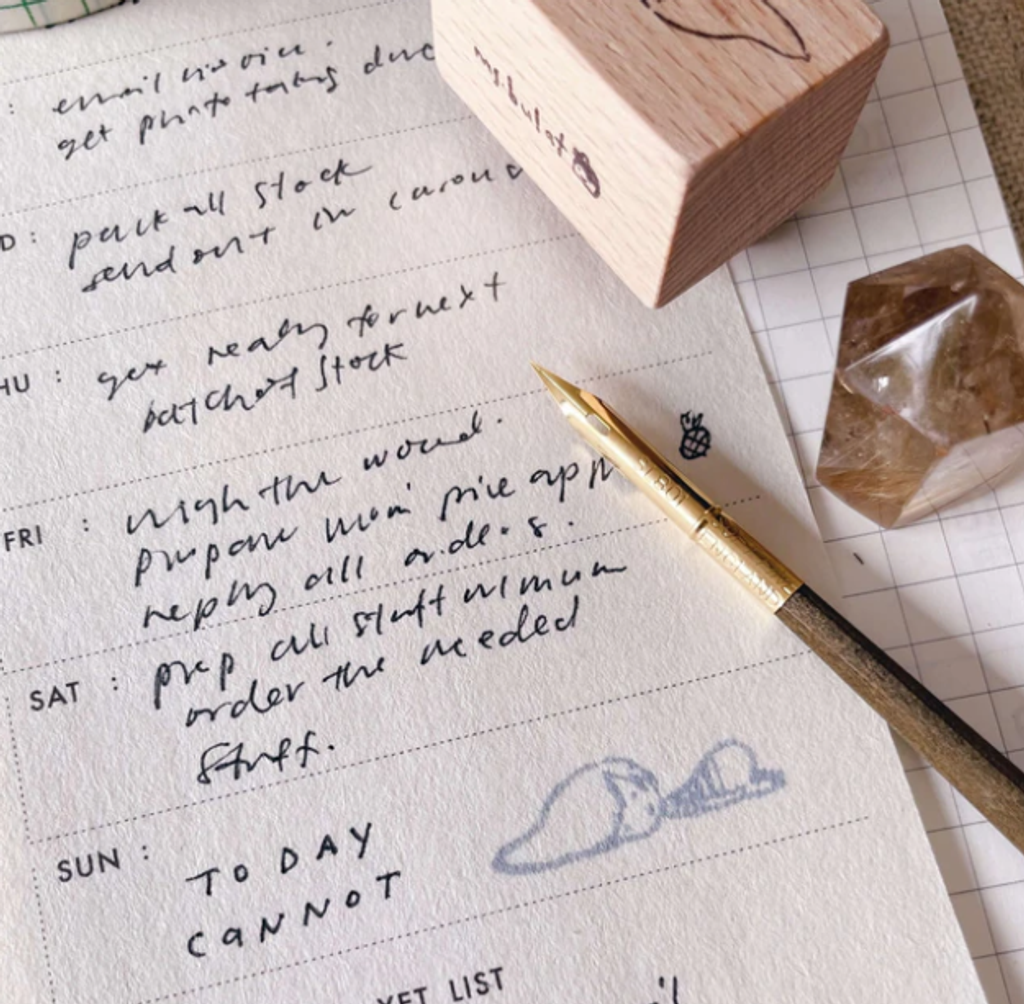 : email invoice.
get photo taking
D : pack all stock
send out in
HU : get ready for next
batch of stock
FRI : weigh the wood.
prepare mom pineapple
reply all orders.
SAT : prep all stuff w/ mum
order the needed
stuff.
SUN : TODAY
CANNOT
YET LIST
ms.bulat
ENGLAND